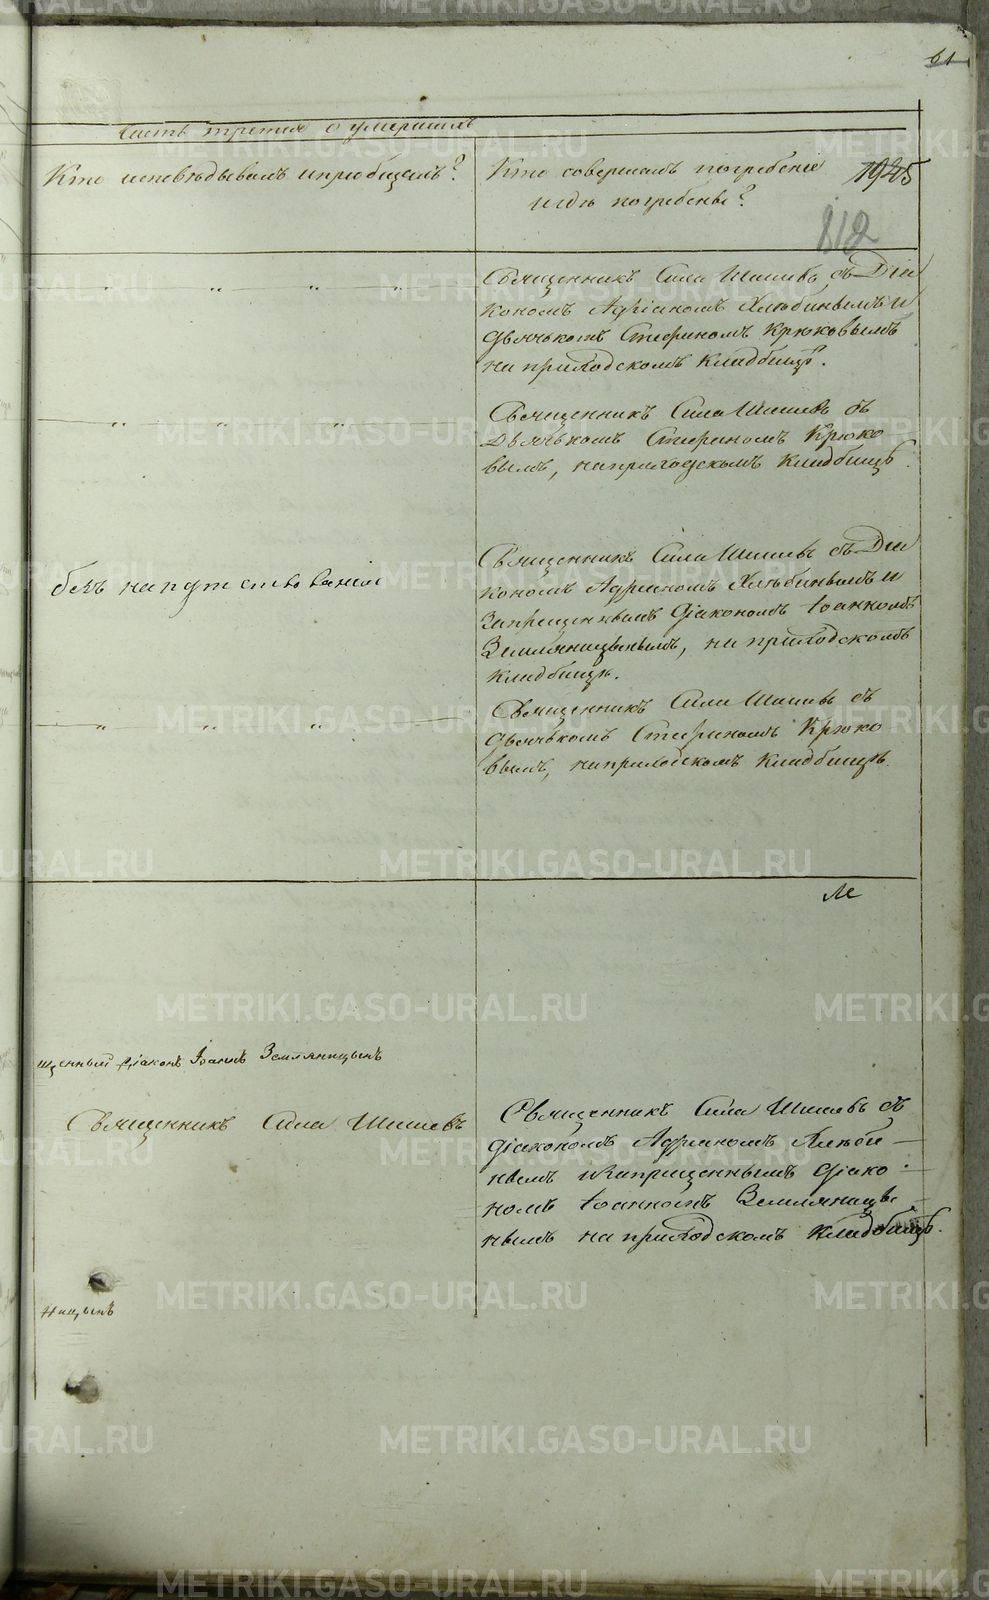 61
Часть третия о умершихъ
Кто исповѣдывалъ и приобщалъ?
Кто совершалъ погребеніе
и гдѣ погребены?
1925
812
Священникъ Сила Шишевъ, съ Діа
кономъ Адріаномъ Хлѣбинымъ и
дьячькомъ Стефаномъ Крюковымъ
на приходскомъ кладбищѣ.
Священникъ Сила Шишевъ съ
Дьячькомъ Стефаномъ Крюко
вымъ, на приходскомъ кладбищѣ.
безъ напутствованія
Священникъ Сила Шишевъ съ Діа
кономъ Адрианомъ Хлѣбинымъ и
Запрещеннымъ діакономъ Іоанномъ
Земляницынымъ, на приходскомъ
кладбищѣ.
Священникъ Сила Шишевъ съ
дьячькомъ Стефаномъ Крюко
вымъ, на приходскомъ кладбищѣ.
щенный діаконъ Іоаннъ Земляницынъ
Священникъ Сила Шишевъ
Священникъ Сила Шишевъ съ
діакономъ Адрианомъ Хлѣби
нымъ и Запрещеннымъ діако
номъ Іоанномъ Земляницы
нымъ на приходскомъ кладбищѣ.
ницынъ
METRIKI.GASO-URAL.RU